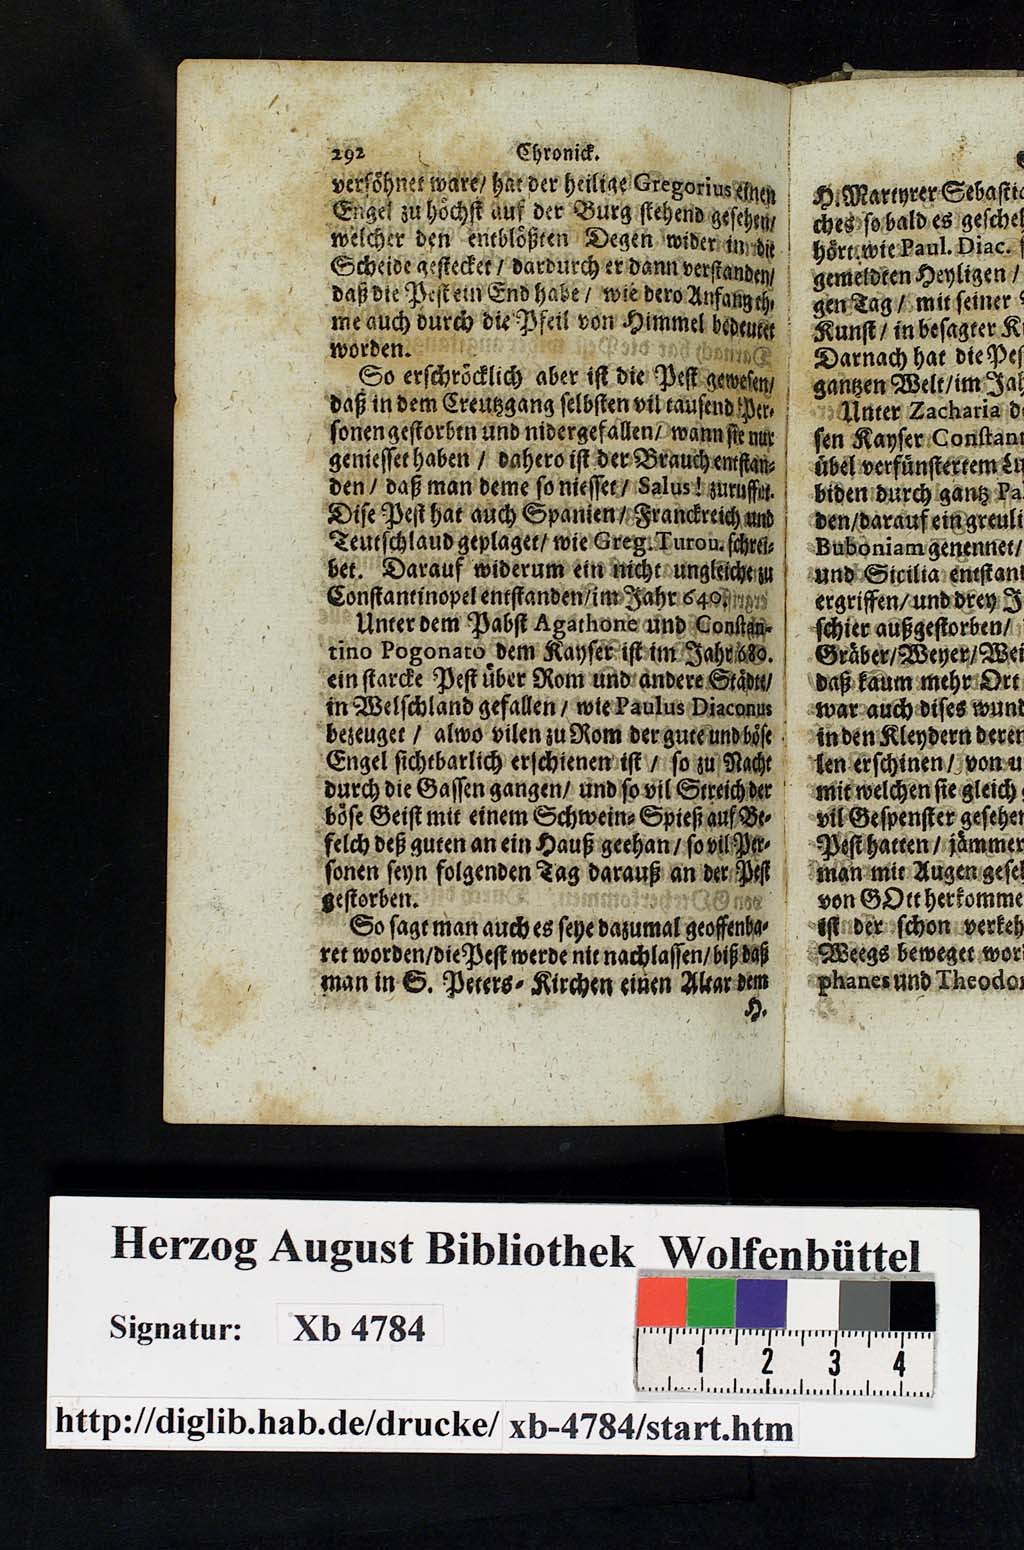 292 Chronick.
versöhnet ware/ hat der heilige Gregorius einen
Engel zu höchst auf der Burg stehend gesehen/
welcher den entblößten Degen wider in die
Scheide gestecket / dardurch er dann verstanden/
daß die Pest ein End habe / wie dero Anfang eh-
me auch durch die Pfeil von Himmel bedeutet
worden.
So erschröcklich aber ist die Pest gewesen/
daß in dem Creutzgang selbsten vil tausend Per-
sonen gestorben und nidergefallen/ wann sie nur
geniesset haben / dahero ist der Brauch entstan-
den / daß man deme so niesset / Salus! zuruffet.
Dise Pest hat auch Spanien / Franckreich und
Teutschlaud geplaget/ wie Greg. Turon. schrei-
bet. Darauf widerum ein nicht ungleiche zu
Constantinopel entstanden/im Jahr 640.
Unter dem Pabst Agathone und Constan-
tino Pogonato dem Kayser ist im Jahr 680.
ein starcke Pest über Rom und andere Städte/
in Welschland gefallen / wie Paulus Diaconus
bezeuget / alwo vilen zu Rom der gute und böse
Engel sichtbarlich erschienen ist / so zu Nacht
durch die Gassen gangen/ und so vil Streich der
böse Geist mit einem Schwein-Spieß auf Be-
felch deß guten an ein Hauß geehan / so vil Per-
sonen seyn folgenden Tag darauß an der Pest
gestorben.
So sagt man auch es seye dazumal geoffenba-
ret worden/die Pest werde nit nachlassen/biß daß
man in S. Peters-Kirchen einen Altar dem
H.
H. Martyrer Sebastia
ches so bald es gescheh
hört, wie Paul. Diac.
gemeldten Heyligen /
gen Tag / mit seiner
Kunst / in besagter K
Darnach hat die Pes
gantzen Welt/im Jah
Unter Zacharia d
sen Kayser Constant
übel verfünstertem Lu
biden durch gantz Pa
den/darauf ein greuli
Buboniam genennet/
und Sicilia entstant
ergriffen/ und drey J
schier außgestorben/
Gräber/Weyer/Wei
daß kaum mehr Ort
war auch dises wund
in den Kleydern deren
len erschinen / von u
mit welchen sie gleich
vil Gespenster gesehen
Pest hatten / jämmer
man mit Augen geseh
von GOtt herkomme
ist der schon verkeh
Weegs beweget wor
phanes und Theodor
Herzog August Bibliothek Wolfenbüttel
Signatur: Xb 4784
1 2 3 4
http://diglib.hab.de/drucke/ xb-4784/start.htm